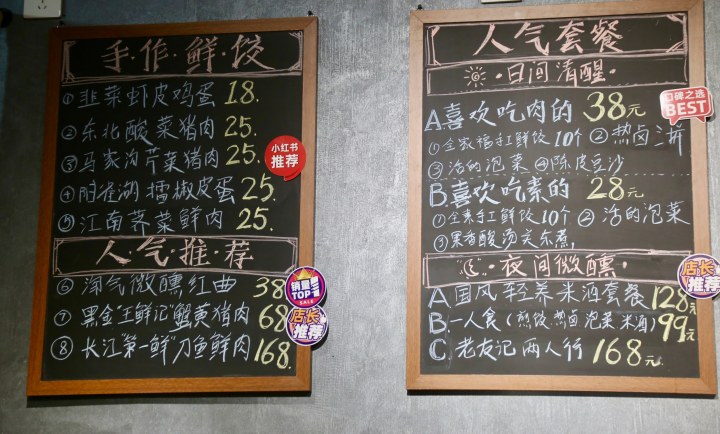 手·作·鲜·饺
①韭菜虾皮鸡蛋 18.
②东北酸菜猪肉 25.
③马家沟芹菜猪肉 25.
小红书
推荐
④洞庭湖擂椒皮蛋 25.
⑤江南荠菜鲜肉 25.
人·气·推·荐
⑥淘气微醺红曲 38
销量
TOP
SALE
⑦黑金"王鲜记"蟹黄猪肉 68
店长
推荐
⑧长江"第一鲜"刀鱼鲜肉 168.
人气套餐
·日间清醒
A.喜欢吃肉的 38元
口碑之选
BEST
①全家福手工鲜饺10个 ②热卤三拼
③活的泡菜 ④陈皮豆沙
B.喜欢吃素的 28元
①全素手工鲜饺10个 ②活的泡菜
③果香酸汤关东煮.
·夜间微醺·
店长
推荐
A国风轻养米酒套餐128元
B.一人食(煎饺 热卤 泡菜 米酒)99元
C.老友记 两人行 168元.